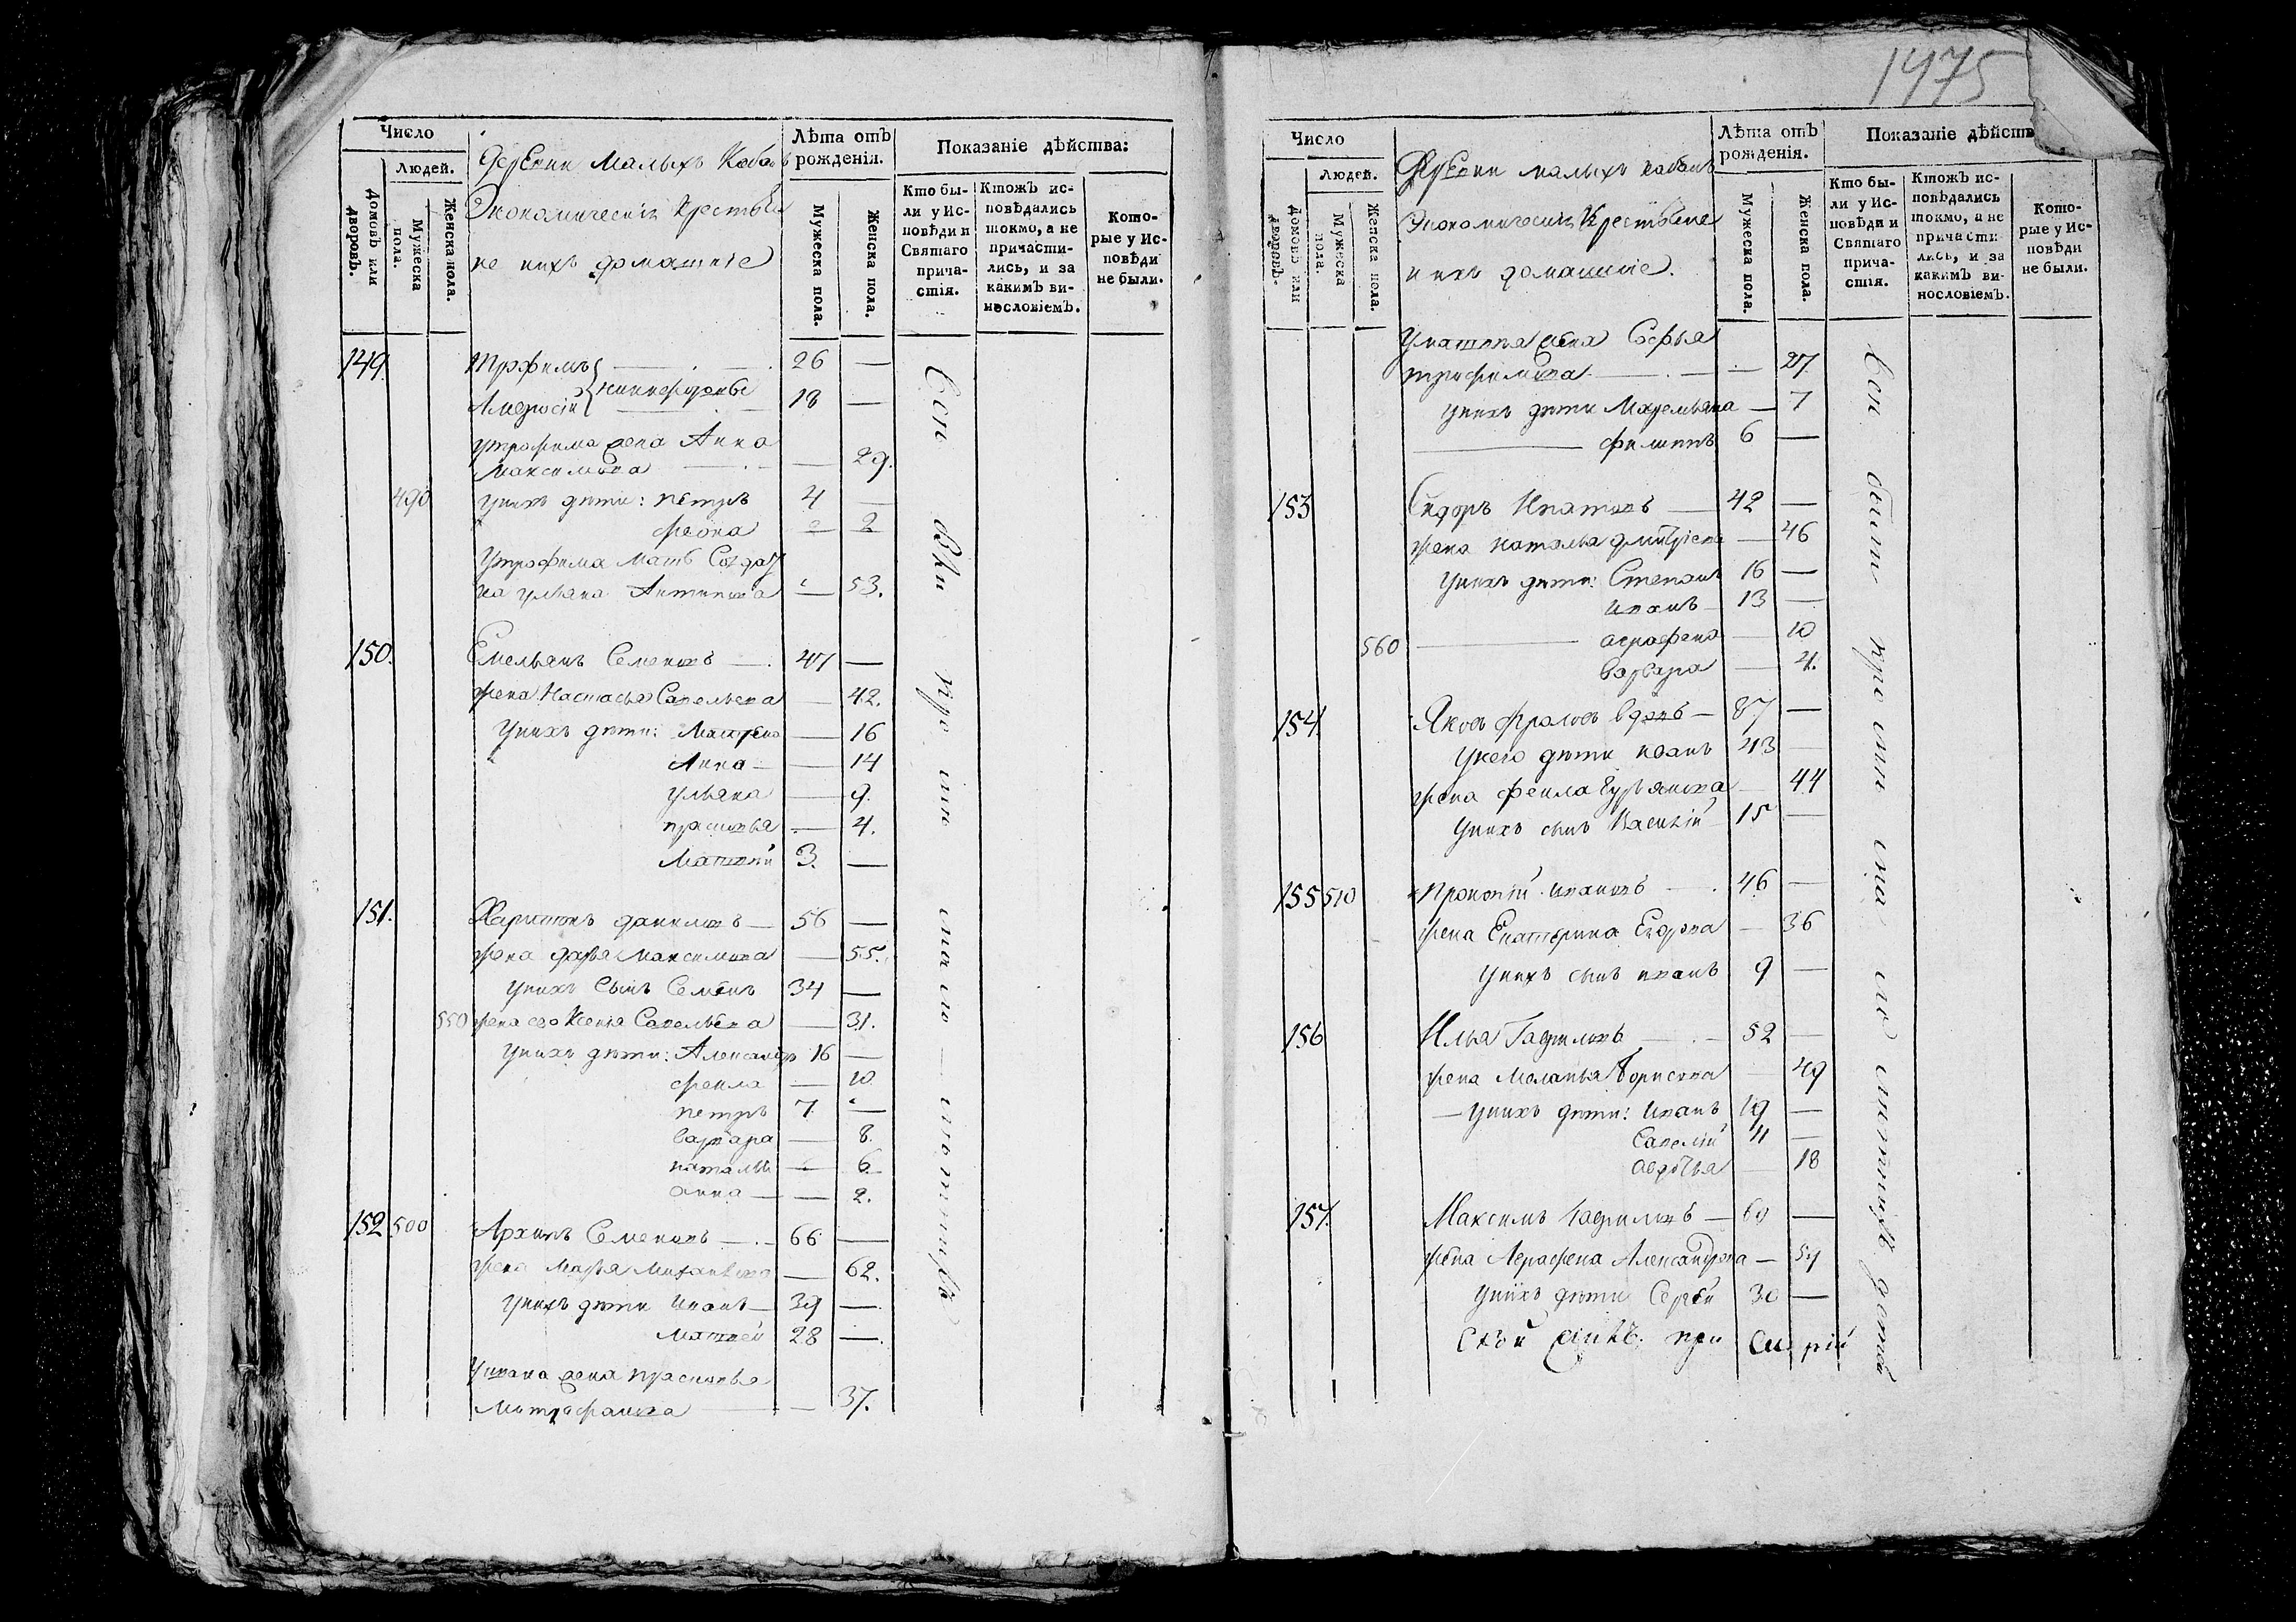 Число
Людей.
Домовъ или дворовъ.
Мужеска пола.
Женска пола.
Деревни Малыхъ Кабанъ
Экономическiя Крестьян
не ихъ домашнiе
Лѣта отъ рожденiя.
Мужеска пола.
Женска пола.
Показанiе дѣйства:
Кто бы-
ли у Ис-
повѣди и
Святаго
прича-
стiя.
Ктожъ ис-
повѣдались
токмо, а не
причасти-
лись, и за
какимъ ви-
нословiемъ.
Кото-
рые у Ис-
повѣди
не были.
149. Трофимъ — 26 —
Никифоровы
Амвросiй — 18 —
утрофима жена Анна
Максимова — — 29.
490 унихъ дѣти: петръ 4 —
феона — 2
Утрофима мать Солдат
ка ульяна Антипова — 53.
150. Емельянъ Семеновъ — 47 —
жена Настасья Савельева — 42.
Унихъ дѣти: Матрена — 16
Анна — — 14
ульяна — 9.
прасковья — 4.
Матвѣй 3. —
151. Харитонъ даниловъ — 56 —
жена дарья Максимова — 55.
унихъ Сынъ Семенъ 34 —
550 жена его Ксенья Савельева — 31.
унихъ дѣти: Александръ 16 —
фекла — 10
петръ 7. —
варвара — 8.
наталья — 6
анна — — 2.
152 500 Архипъ Семеновъ — 66 —
жена Марья Михайлова — 62.
унихъ дѣти Иванъ — 39 —
матвей 28 —
Уивана жена прасковья
Митрофанова — — 37.
Вси
1475
Число
Людей.
Домовъ или дворовъ.
Мужеска пола.
Женска пола.
Деревни малыхъ кабанъ
Экономическiя Крестьяне
ихъ домашнiе.
Лѣта отъ рожденiя.
Мужеска пола.
Женска пола.
Показанiе дѣйств
Кто бы-
ли у Ис-
повѣди и
Святаго
прича-
стiя.
Ктожъ ис-
повѣдались
токмо, а не
причасти-
лись, и за
какимъ ви-
нословiемъ.
Кото-
рые у Ис-
повѣди
не были.
Уматвея жена Софья
трофимова — — 27
Унихъ дѣти Маремьяна — 7
— филипъ 6 —
153 Сидоръ Ипатовъ — 42 —
жена наталья дмитрiева — 46
Унихъ дѣти: Степанъ 16 —
иванъ — 13 —
560 — аграфена — 10
варвара — 4.
154. Яковъ фроловъ вдовъ — 87 —
Унего дѣти иванъ 43 —
жена фекла Гурьянова — 44
Унихъ сынъ Василiй 15 —
155 510 прокопiй ивановъ — 46 —
жена Екатерина Егорова — 36
Унихъ сынъ иванъ 9 —
156 Илья Гавриловъ — 52 —
жена Меланья Борисова — 49
— Унихъ дѣти: Иванъ 19 —
Савелiй 11 —
авдотья — 18
157. Максимъ Гавриловъ —
жена Аграфена Александрова —
Унихъ дѣти Сергѣй 30 —
Вси